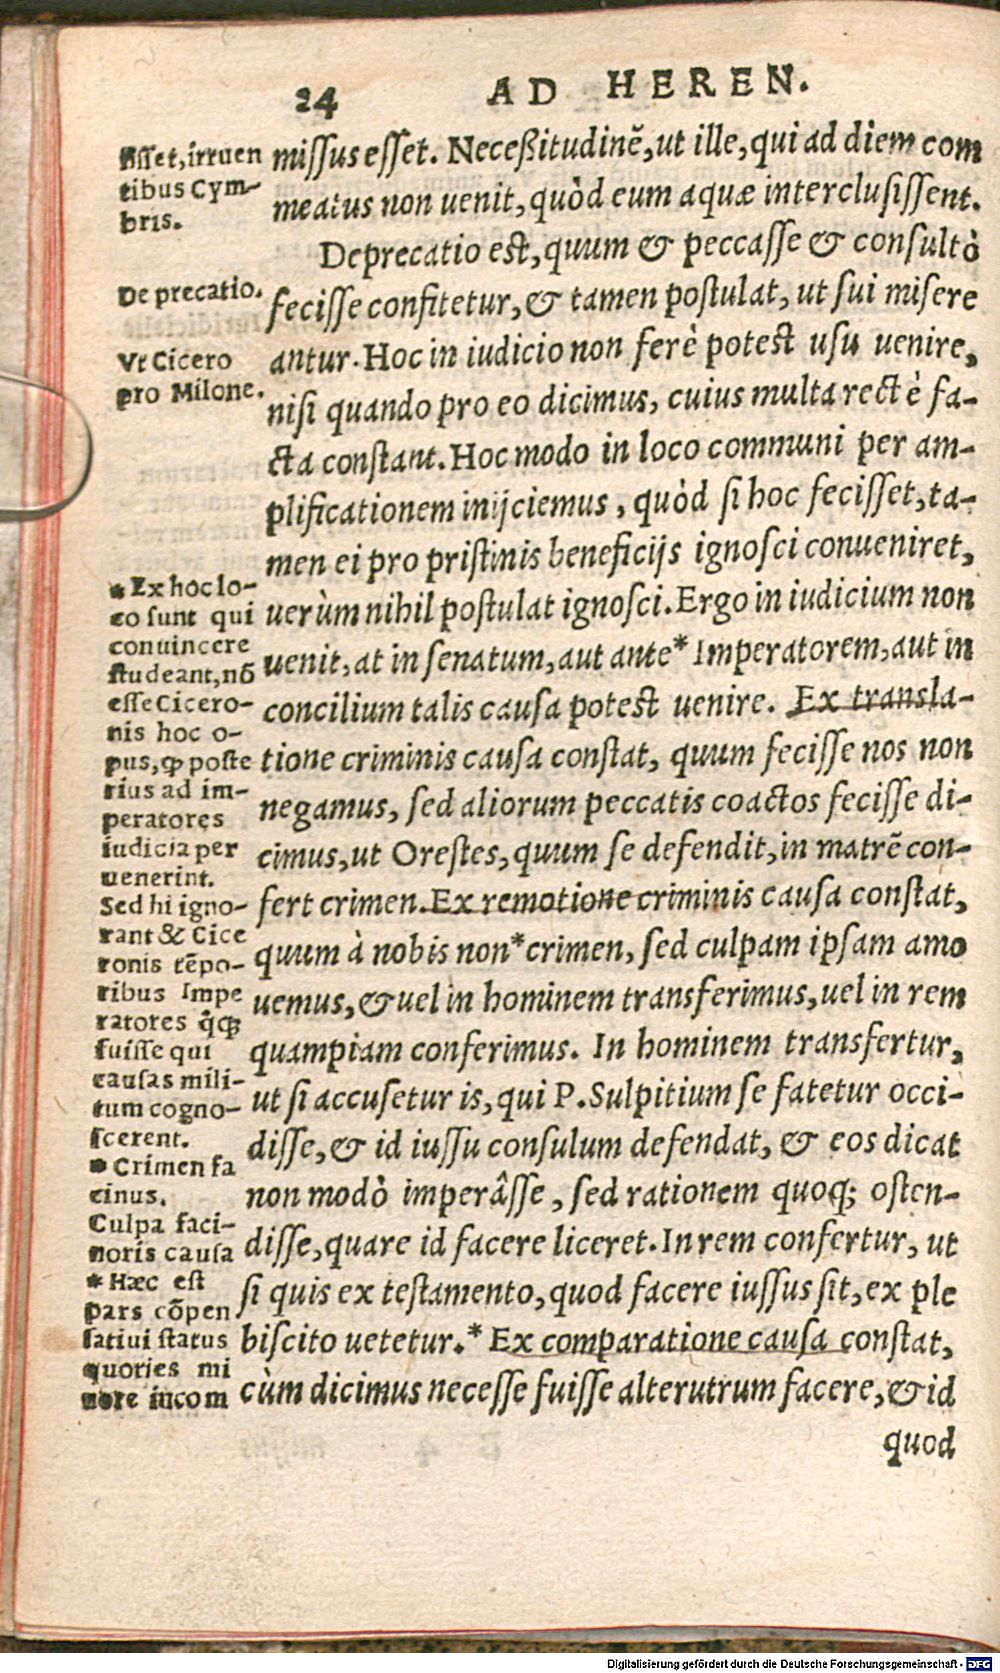 24 AD HEREN.
missus esset. Neceßitudinẽ, ut ille, qui ad diem com
meatus non uenit, quòd eum aquæ interclusissent.
Deprecatio est, quum & peccasse & consultò
fecisse confitetur, & tamen postulat, ut sui misere
antur. Hoc in iudicio non ferè potest usu uenire,
nisi quando pro eo dicimus, cuius multa rectè fa-
cta constant. Hoc modo in loco communi per am-
plificationem inijciemus, quòd si hoc fecisset, ta-
men ei pro pristinis beneficijs ignosci conueniret,
uerùm nihil postulat ignosci. Ergo in iudicium non
uenit, at in senatum, aut ante* Imperatorem, aut in
concilium talis causa potest uenire. Ex transla-
tione criminis causa constat, quum fecisse nos non
negamus, sed aliorum peccatis coactos fecisse di-
cimus, ut Orestes, quum se defendit, in matrẽ con-
fert crimen. Ex remotione criminis causa constat,
quum à nobis non* crimen, sed culpam ipsam amo
uemus, & uel in hominem transferimus, uel in rem
quampiam conferimus. In hominem transfertur,
ut si accusetur is, qui P. Sulpitium se fatetur occi-
disse, & id iussu consulum defendat, & eos dicat
non modò imperâsse, sed rationem quoq; osten-
disse, quare id facere liceret. In rem confertur, ut
si quis ex testamento, quod facere iussus sit, ex ple
biscito uetetur.* Ex comparatione causa constat,
cùm dicimus necesse fuisse alterutrum facere, & id
quod
sisset, irruen
tibus Cym-
bris.
De precatio.
Vt Cicero
pro Milone.
* Ex hoc lo-
co sunt qui
conuincere
studeant, nõ
esse Cicero-
nis hoc o-
pus, ꝙ poste
rius ad im-
peratores
iudicia per
uenerint.
Sed hi igno-
rant & Cice
ronis tẽpo-
ribus Impe
ratores q̃q;
fuisse qui
causas mili-
tum cogno-
scerent.
* Crimen fa
cinus.
Culpa faci-
noris causa
* Hæc est
pars cõpen
satiui status
quoties mi
nore incom
Digitalisierung gefördert durch die Deutsche Forschungsgemeinschaft - DFG